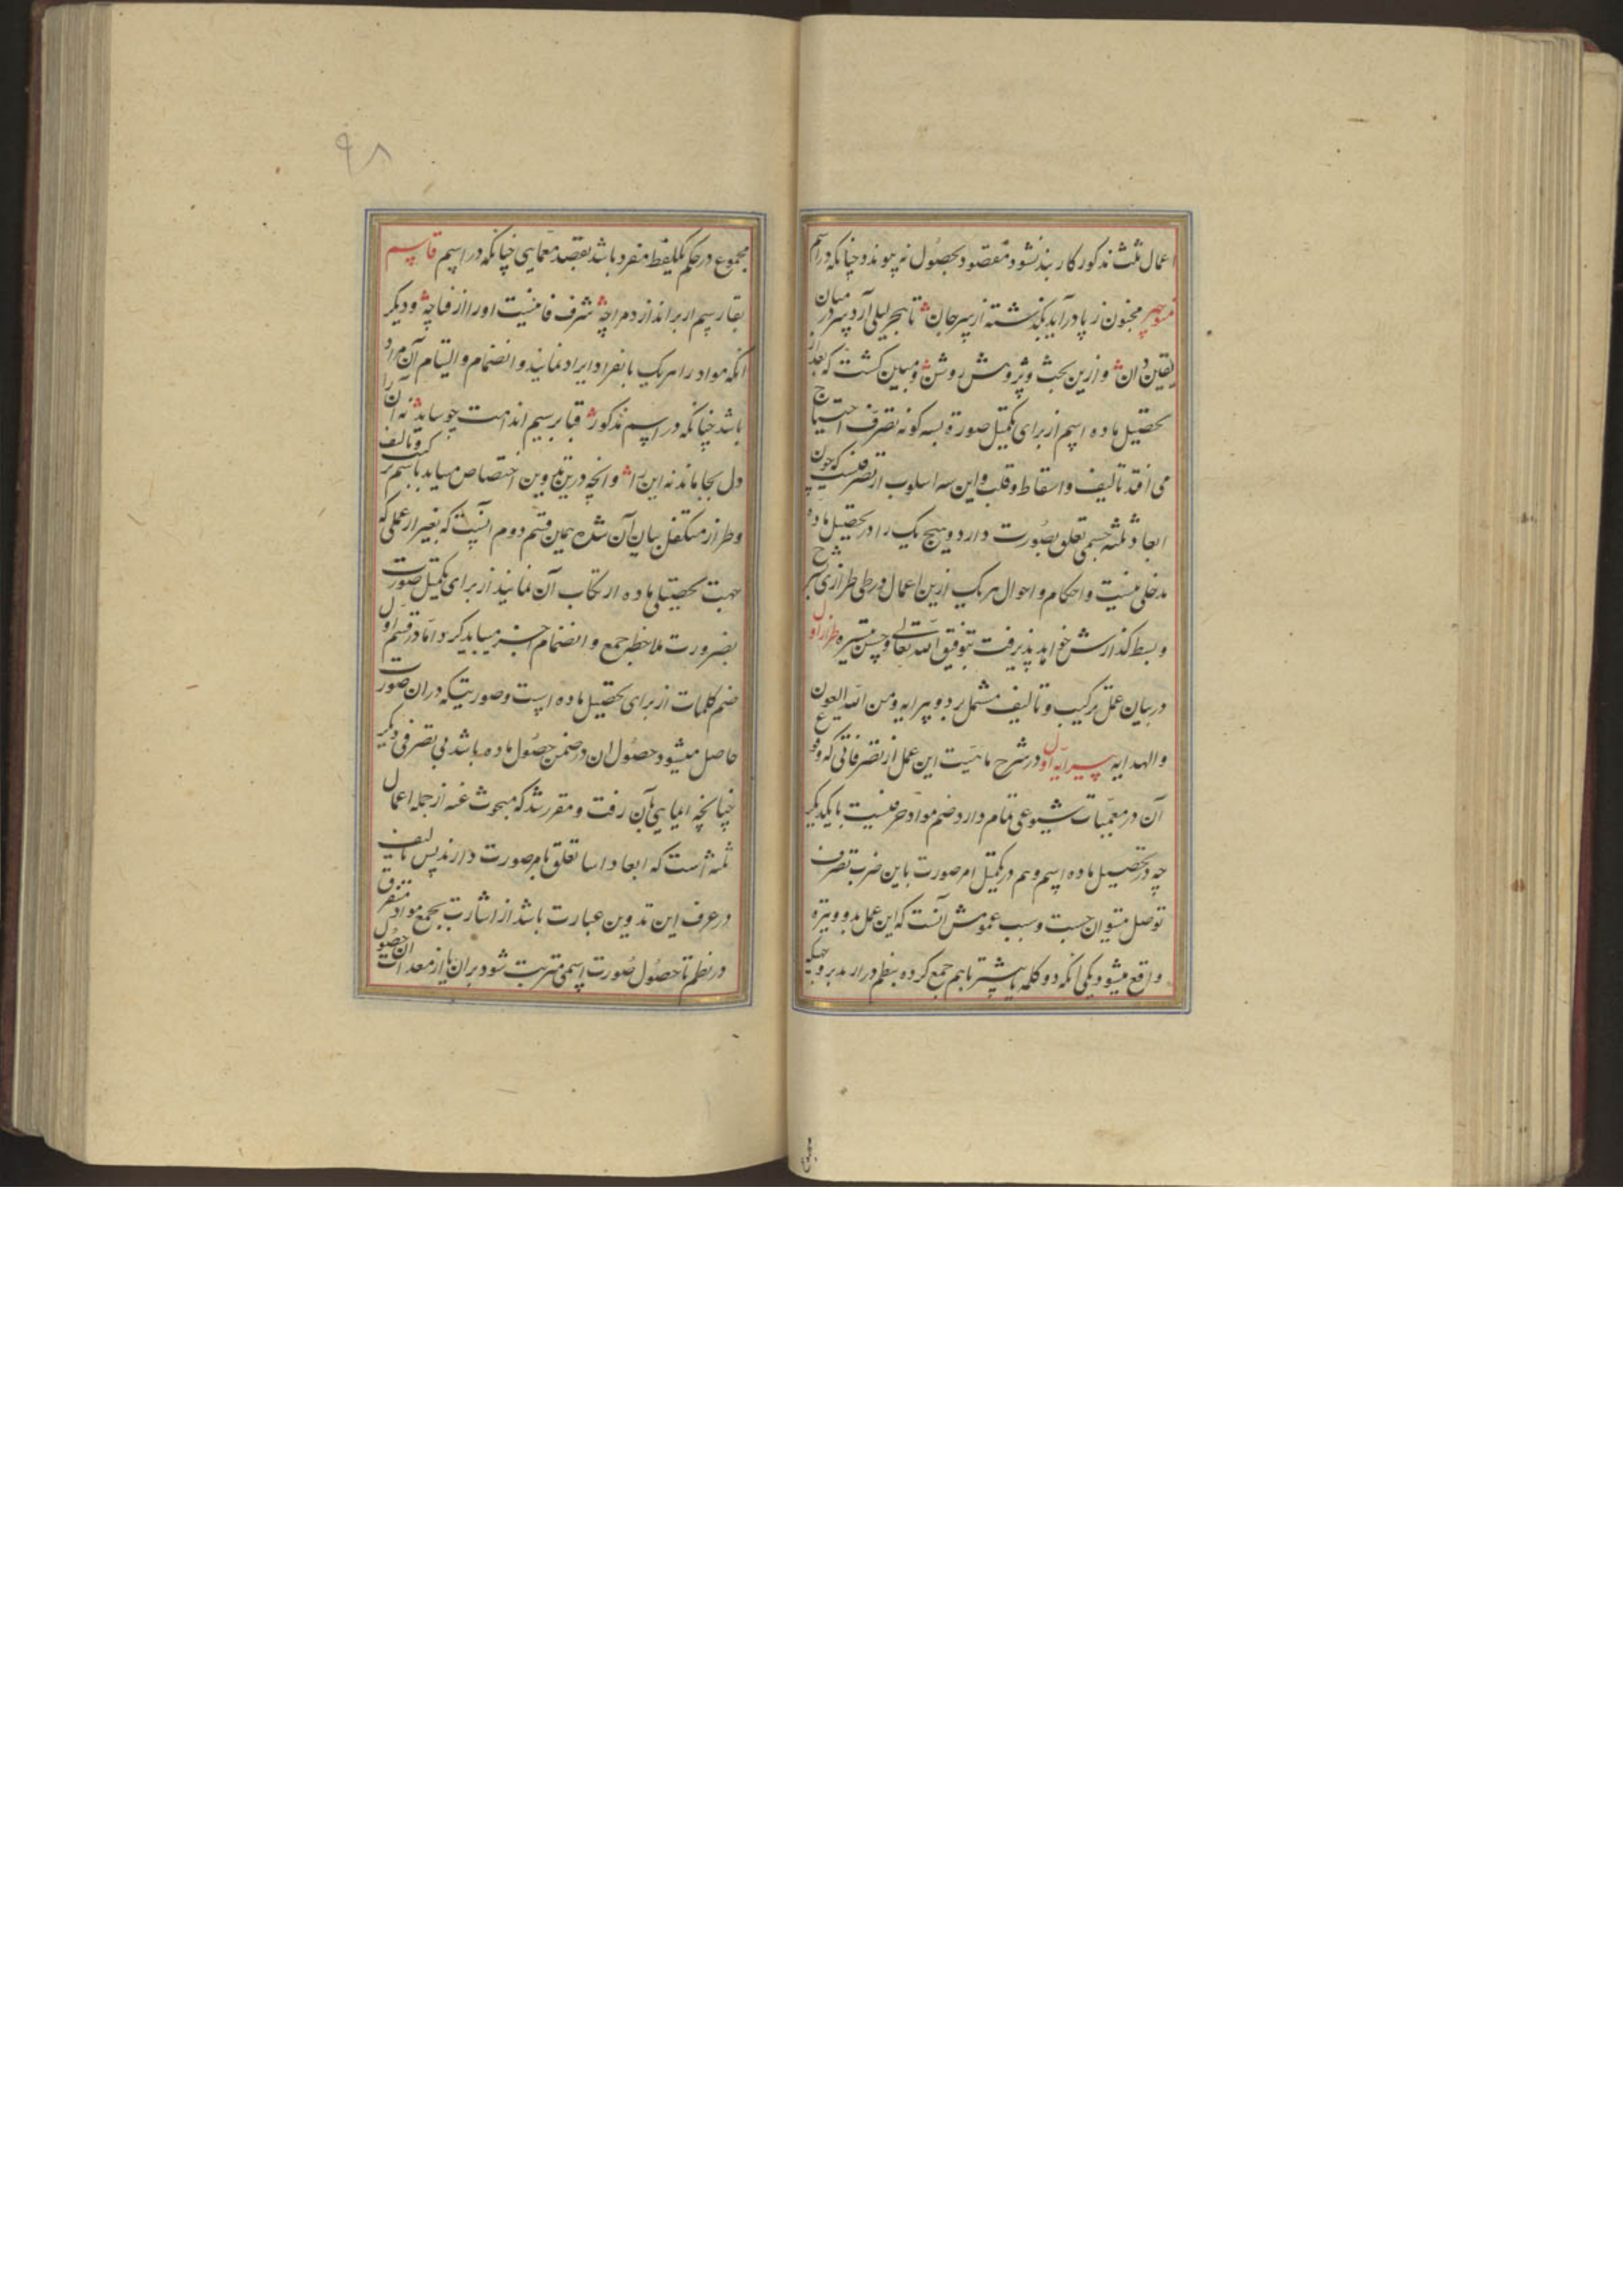 اعمال ثلث مذکور کار بند نشود مقصود بحصول نه پیوندد چنانکه در اسم
منوچهر مجنون ز پا درآید بگذشته از سر جان تا هجر لیلی آرد سر در میان
یقین دان و ازین بحث و پژوهش روشن و مبین کشت که بعد از
تحصیل ماده اسم از برای تکمیل صورة بسه کونه تصرف احتیاج
می افتد تالیف و اسقاط و قلب و این سه اسلوب از تصرفست که چون
ابعاد ثلثه جسمی تعلق بصورت دارد و هیچ یک را در تحصیل ماده
مدخلی نیست و احکام و احوال هر یک ازین اعمال در طی طرازی شرح
و بسط کذارش خواهد پذیرفت بتوفیق الله تعالی و حسن تیسیره طراز اول
در بیان عمل ترکیب و تالیف مشتمل بر دو پیرایه و من الله العون
و الهدایه پیرایه اول در شرح ماهیت این عمل از تصرفاتی که وقوع
آن در معمیات شیوعی تمام دارد ضم مواد حرفیست با یکدیکر
چه در تحصیل ماده اسم و هم در تکمیل امر صورت باین ضرب تصرف
توصل میتوان جست و سبب عمومش آنست که این عمل بدو وتیره
واقع میشود یکی انکه دو کلمه یا بیشتر باهم جمع کرده بنظم درارند بر وجهی که
۹۸
مجموع در حکم یکلفظ مفرد باشد بقصد معمایی چنانکه در اسم قاسم
بقا رسم ار براندازد مراچه شرف فانیست او را از فنا چه و دیکر
انکه مواد را هر یک بانفراد ایراد نمایند و انضمام و التیام آن مراد
باشد چنانکه در اسم مذکور قبا بر سیم اندامت چو ساید نه آن را
دل بجا ماند نه این را و انچه درین تدوین اختصاص مییابد باسم ترکیب و تالیف
و طراز متکفل بیان آن شده همین قسم دوم است که بغیر از عملی که
جهت تحصیل ماده ارتکاب آن نمایند از برای تکمیل صورت
بضرورت ملاحظه جمع و انضمام اجزا میباید کرد و اما در قسم اول
ضم کلمات از برای تحصیل ماده است و صورتیکه دران صورت
حاصل میشود حصول ان در ضمن حصول ماده باشد بی تصرفی دیکر
چنانچه ایمایی بآن رفت و مقرر شد که مبحوث عنه از جمله اعمال
ثلثه است که ابعاد اسا تعلق بامر صورت دارند پس تالیف
در عرف این تدوین عبارت باشد از اشارت بجمع مواد متفرق
در نظم تا حصول صورت اسمی مترتب شود بران یا از معدات ان حصول